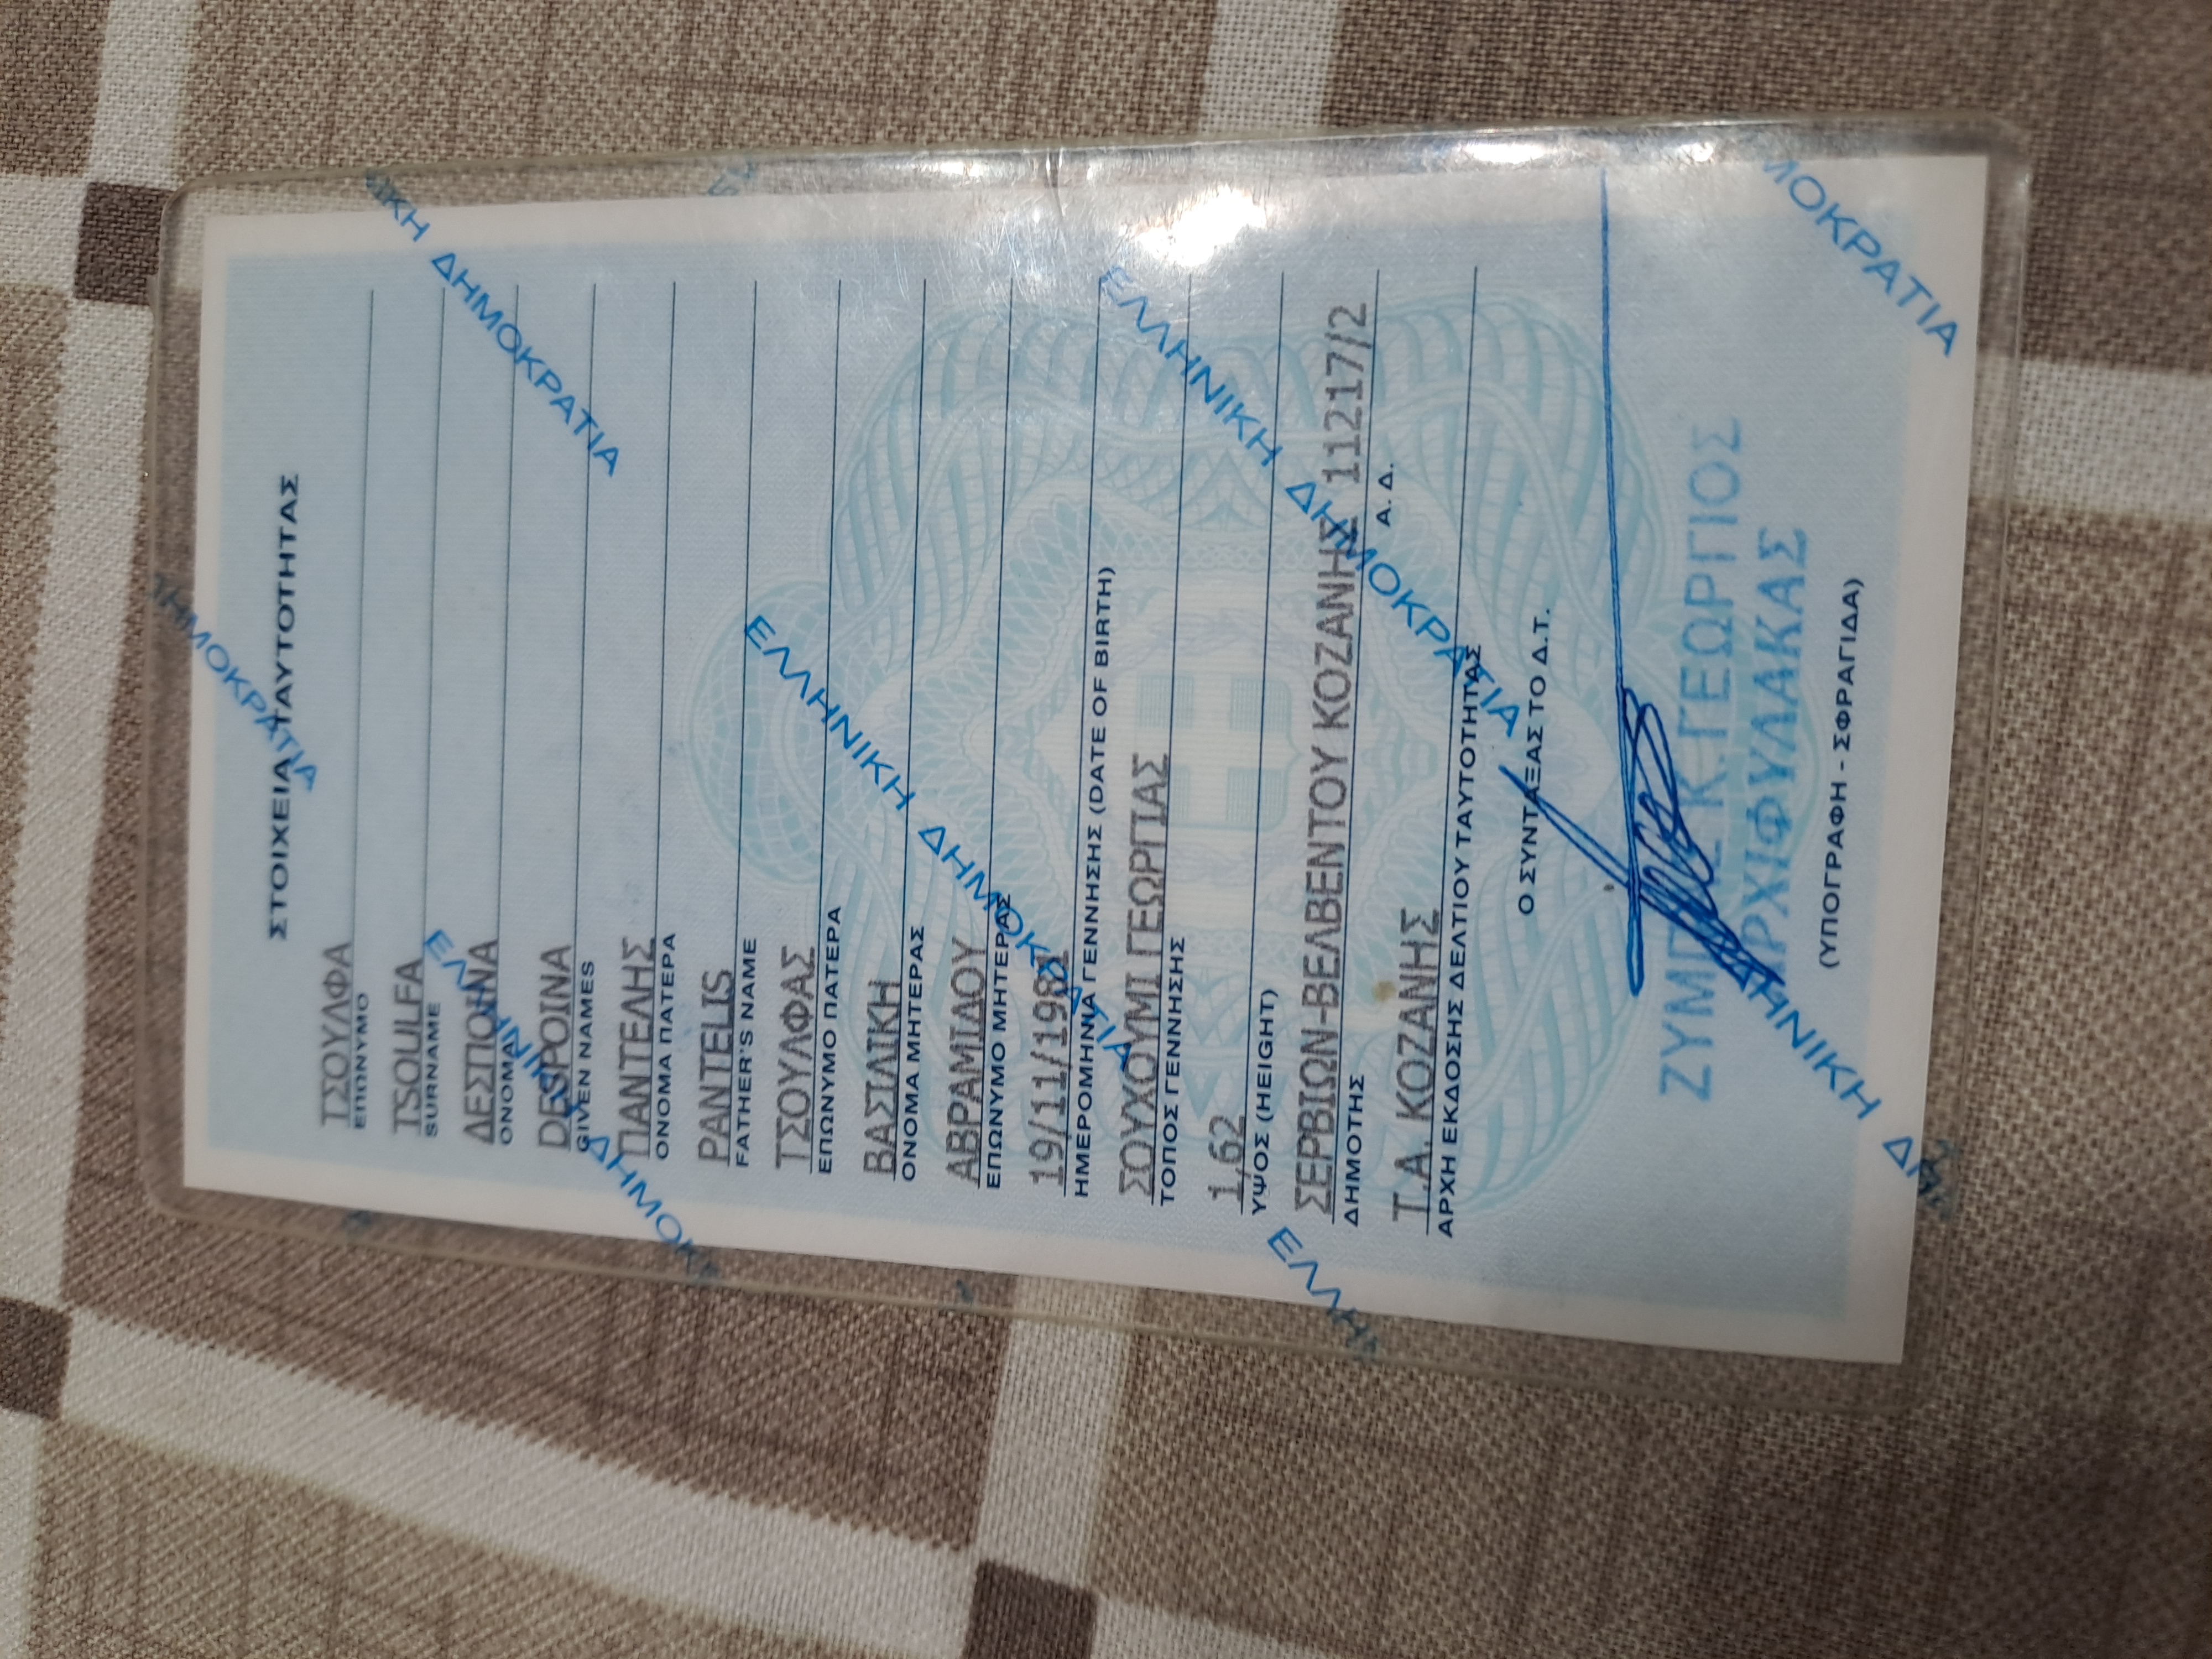 ΣΤΟΙΧΕΙΑ ΤΑΥΤΟΤΗΤΑΣ
ΤΣΟΥΛΦΑ
ΕΠΩΝΥΜΟ
TSOULFA
SURNAME
ΔΕΣΠΟΙΝΑ
ΟΝΟΜΑ
DESPOINA
GIVEN NAMES
ΠΑΝΤΕΛΗΣ
ΟΝΟΜΑ ΠΑΤΕΡΑ
PANTELIS
FATHER'S NAME
ΤΣΟΥΛΦΑΣ
ΕΠΩΝΥΜΟ ΠΑΤΕΡΑ
ΒΑΣΙΛΙΚΗ
ΟΝΟΜΑ ΜΗΤΕΡΑΣ
ΑΒΡΑΜΙΔΟΥ
ΕΠΩΝΥΜΟ ΜΗΤΕΡΑΣ
ΗΜΕΡΟΜΗΝΙΑ ΓΕΝΝΗΣΗΣ (DATE OF BIRTH)
ΣΟΥΧΟΥΜΙ ΓΕΩΡΓΙΑΣ
ΤΟΠΟΣ ΓΕΝΝΗΣΗΣ
1,62
ΥΨΟΣ (HEIGHT)
ΣΕΡΒΙΩΝ-ΒΕΛΒΕΝΤΟΥ ΚΟΖΑΝΗΣ 11217/2
ΔΗΜΟΤΗΣ Α. Δ.
Τ.Α. ΚΟΖΑΝΗΣ
ΑΡΧΗ ΕΚΔΟΣΗΣ ΔΕΛΤΙΟΥ ΤΑΥΤΟΤΗΤΑΣ
Ο ΣΥΝΤΑΞΑΣ ΤΟ Δ.Τ.
Κ. ΓΕΩΡΓΙΟΣ
ΑΡΧΙΦΥΛΑΚΑΣ
(ΥΠΟΓΡΑΦΗ - ΣΦΡΑΓΙΔΑ)
ΕΛΛΗΝΙΚΗ ΔΗΜΟΚΡΑΤΙΑ
ΕΛΛΗΝΙΚΗ ΔΗΜΟΚΡΑΤΙΑ